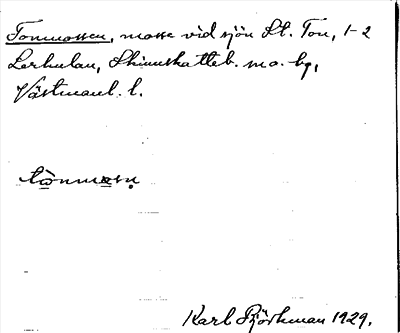 Tonmossen, mosse vid sjön St. Ton, 1-2
Lerkulan, Skinnskatteb. sn o. bg,
Västmanl. l.
tònmɷsn
Karl Björkman 1929.